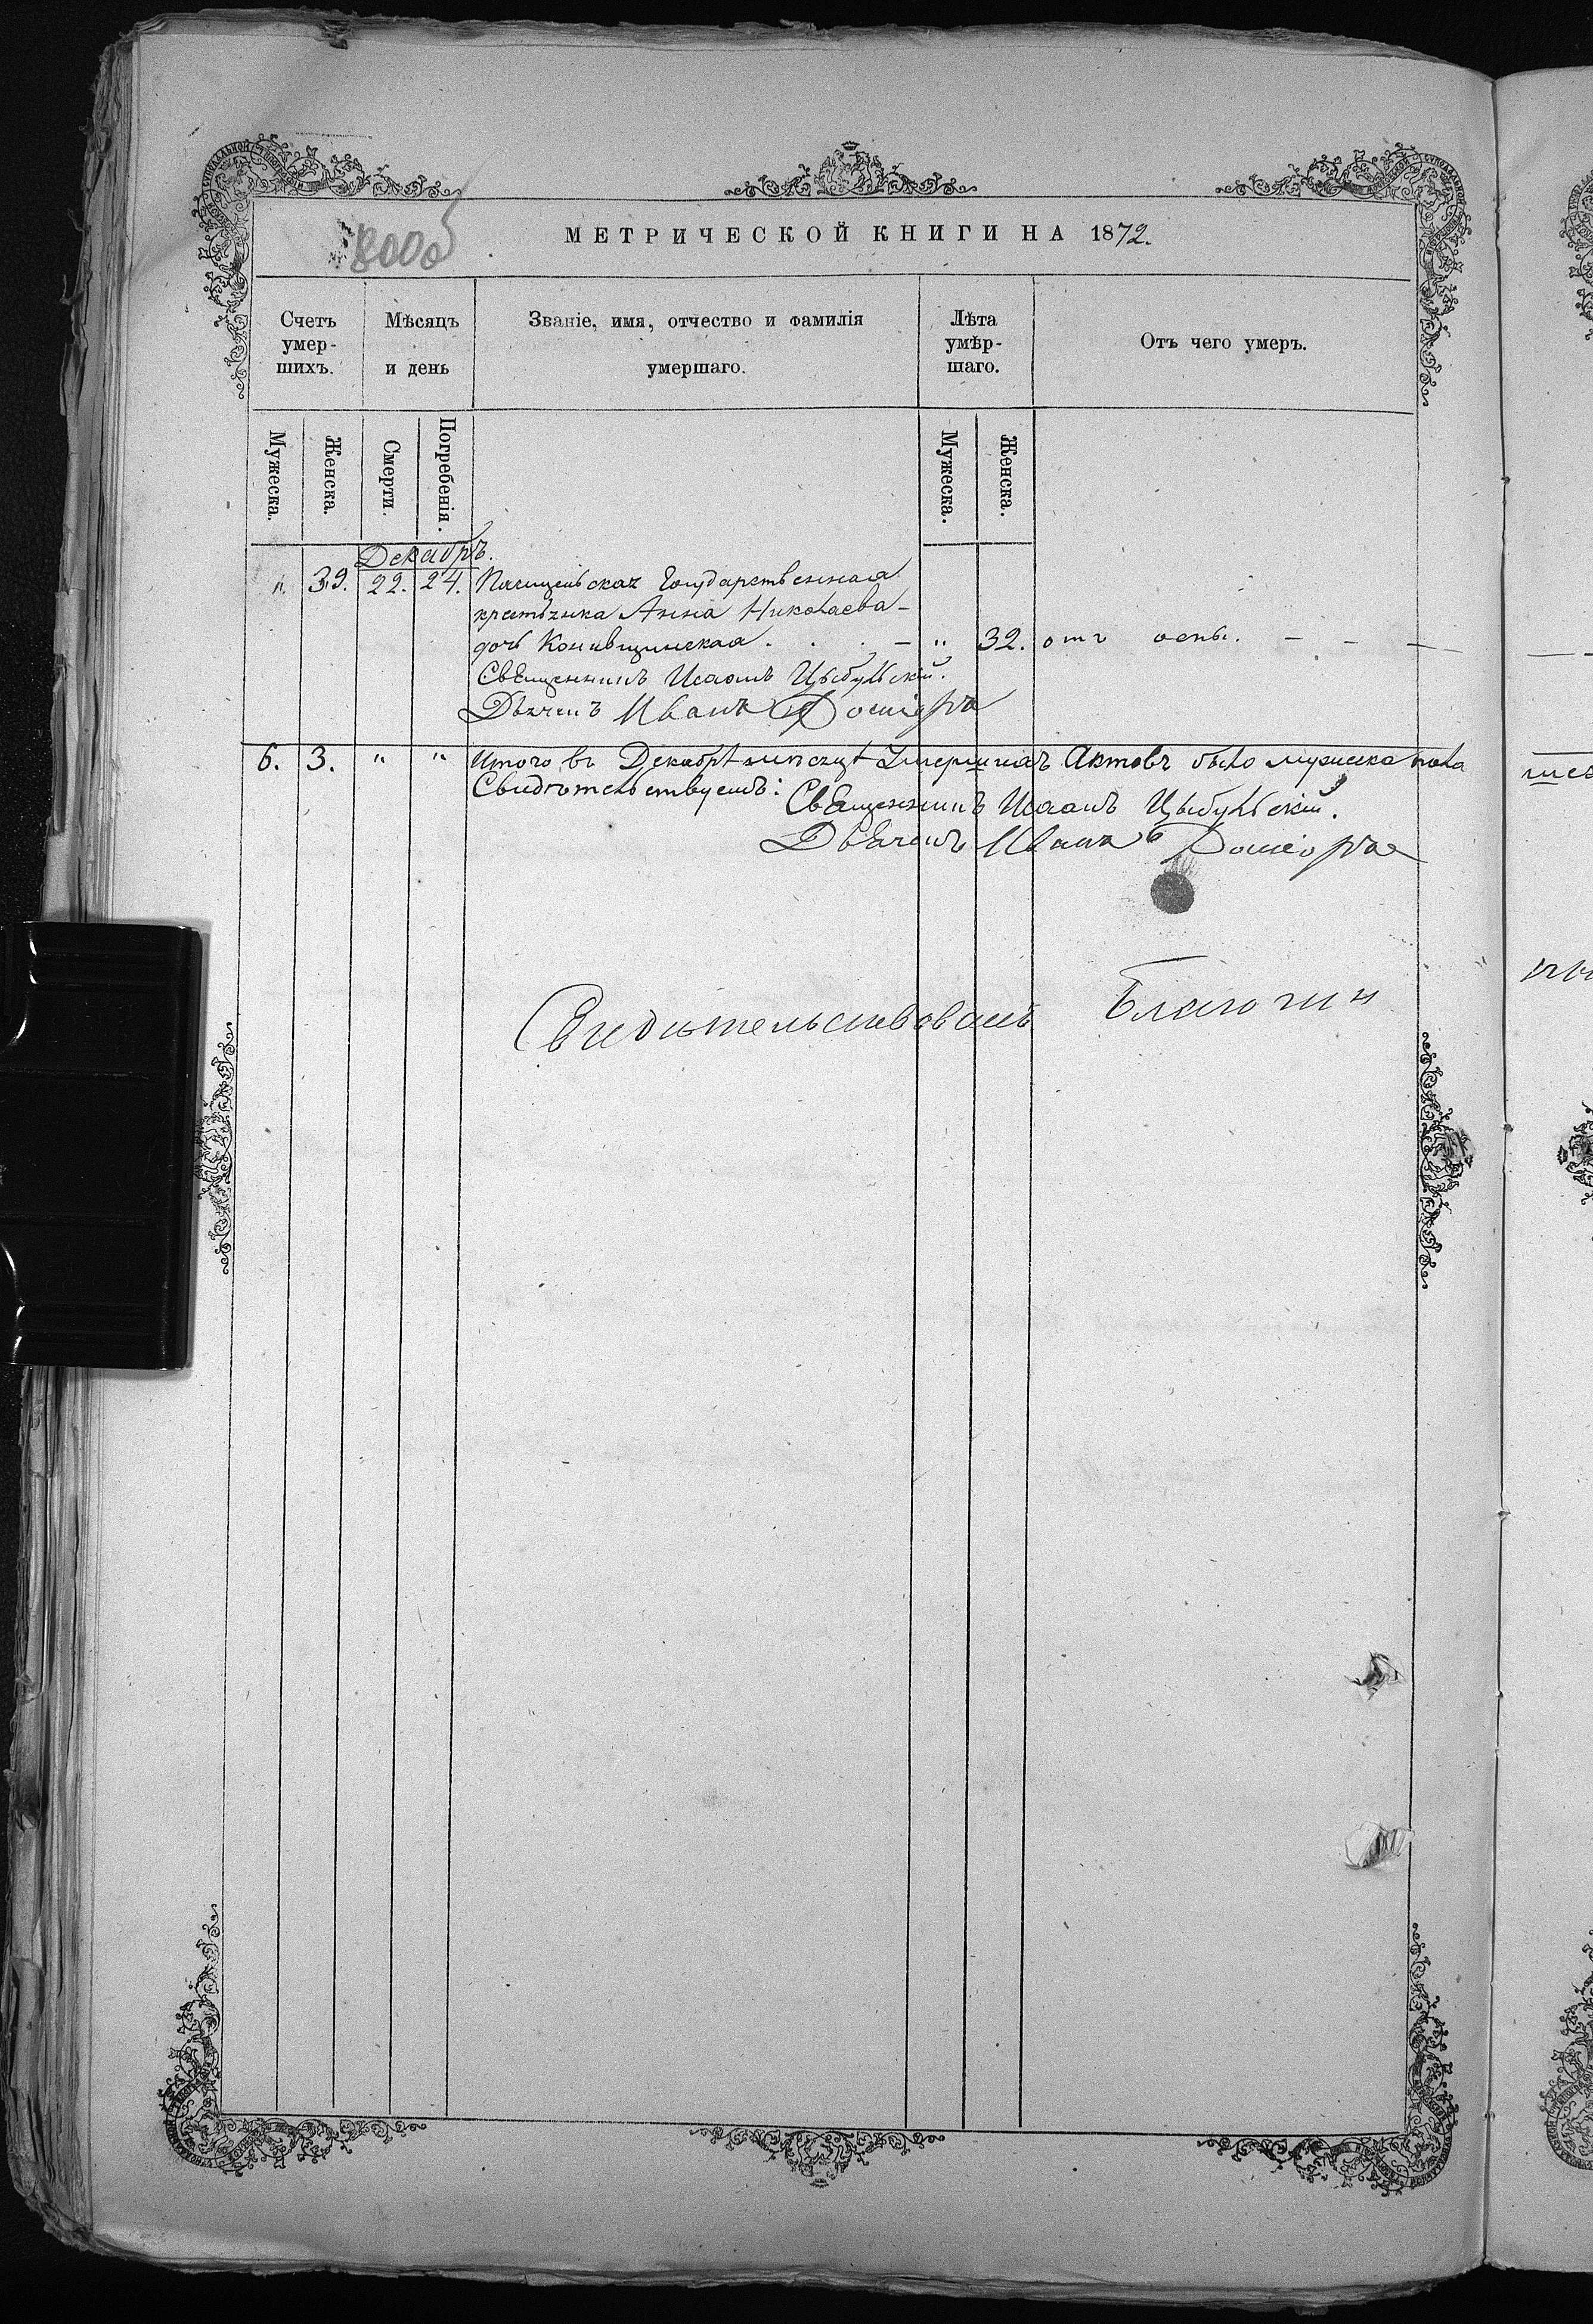 8000
МЕТРИЧЕСКОЙ КНИГИ НА 1872.
Счетъ умер- шихъ.
Мѣсяцъ и день
Званіе, имя, отчество и фамилія умершаго.
Лѣта умер- шаго.
Отъ чего умеръ.
Мужеска. Женска. Смерти. Погребенія. Мужеска. Женска.
Декабрь.
" 39. 22. 24. Государственная
крестьянка Анна Николаева
дочь . . . – " 32. отъ оспы. – – –
Священникъ Исаакъ Цыбульскій.
Дьячекъ Иванъ
6. 3. " " Итого въ Декабрѣ мѣсяцѣ Умершихъ Актовъ было мужеска пола
Свидѣтельствуемъ:
Священникъ Исаакъ Цыбульскій.
Дьячекъ Иванъ
Свидѣтельствовалъ Благочин